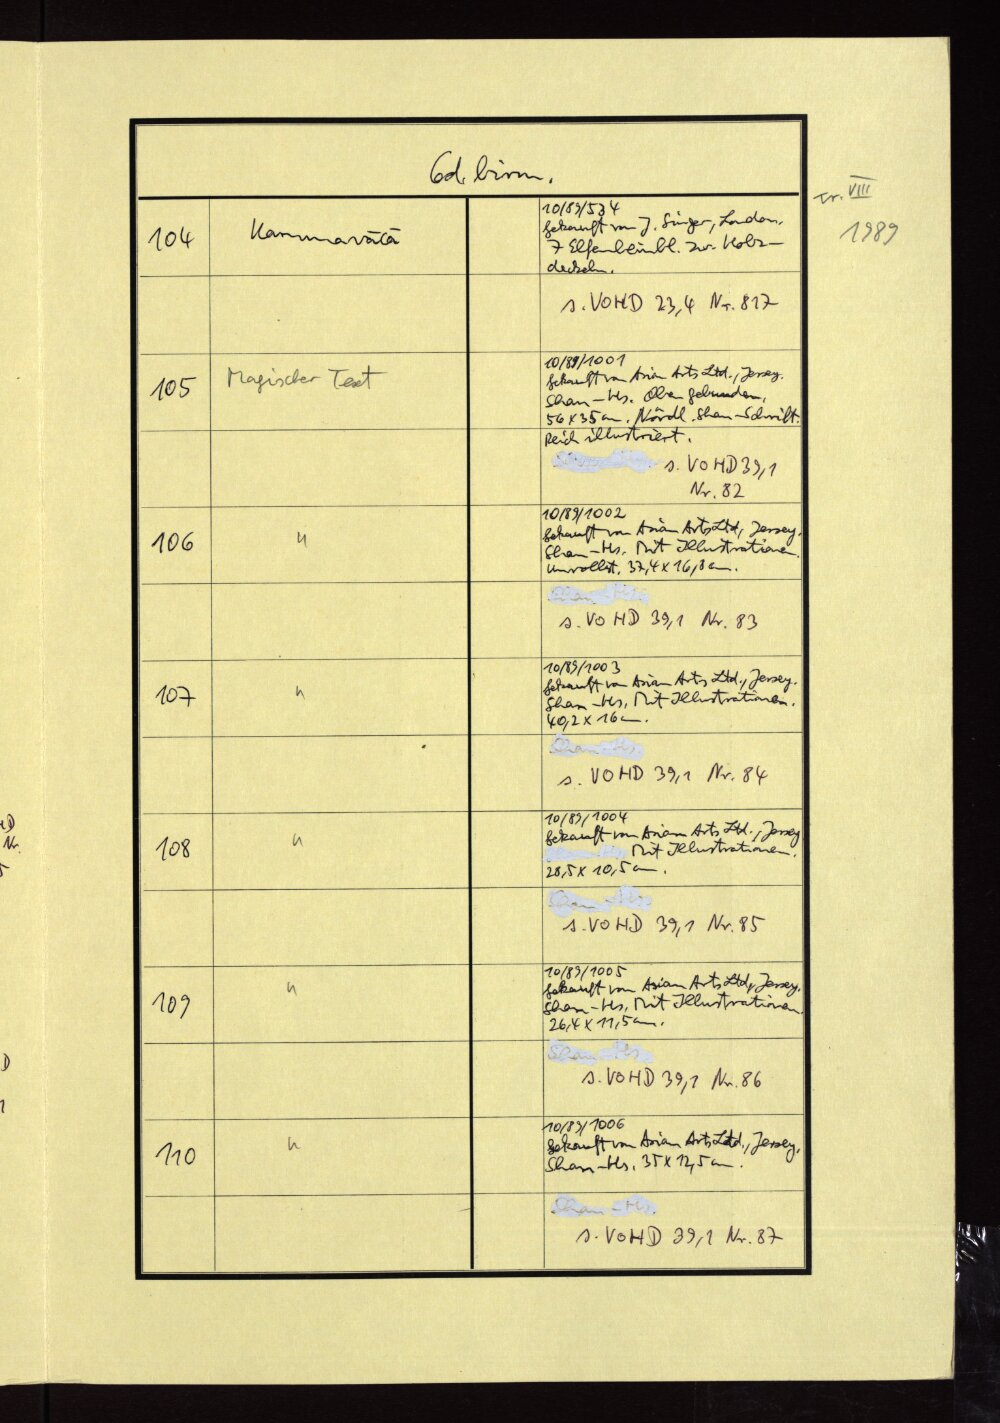 Cod. birm.
Tr. VIII
1989
104
Kammavācā
10/89/534
gekauft von J. Singer, London.
7 Elfenbeinbl. zw. Holz-
deckeln.
s. VOHD 23,4 Nr. 817
105
Magischer Text
10/89/1001
gekauft von Asian Arts Ltd., Jersey.
Shan-Hs. Oben gebunden.
56 x 35 cm. Nördl. Shan-Schrift.
Reich illustriert.
s. VOHD 39,1
Nr. 82
106
"
10/89/1002
gekauft von Asian Arts Ltd, Jersey.
Shan-Hs. Mit Illustrationen.
Unvollst. 37,4 x 16,8 cm.
Shan-Hs.
s. VOHD 39,1 Nr. 83
107
"
10/89/1003
gekauft von Asian Arts Ltd., Jersey.
Shan-Hs. Mit Illustrationen.
40,2 x 16 cm.
Shan-Hs.
s. VOHD 39,1 Nr. 84
108
"
10/89/1004
gekauft von Asian Arts Ltd., Jersey
Mit Illustrationen.
28,5 x 10,5 cm.
Shan-Hs.
s. VOHD 39,1 Nr. 85
109
"
10/89/1005
gekauft von Asian Arts Ltd, Jersey.
Shan-Hs. Mit Illustrationen.
26,4 x 11,5 cm.
Shan-Hs.
s. VOHD 39,1 Nr. 86
110
"
10/89/1006
gekauft von Asian Arts Ltd., Jersey.
Shan-Hs. 35 x 12,5 cm.
Shan-Hs.
s. VOHD 39,1 Nr. 87